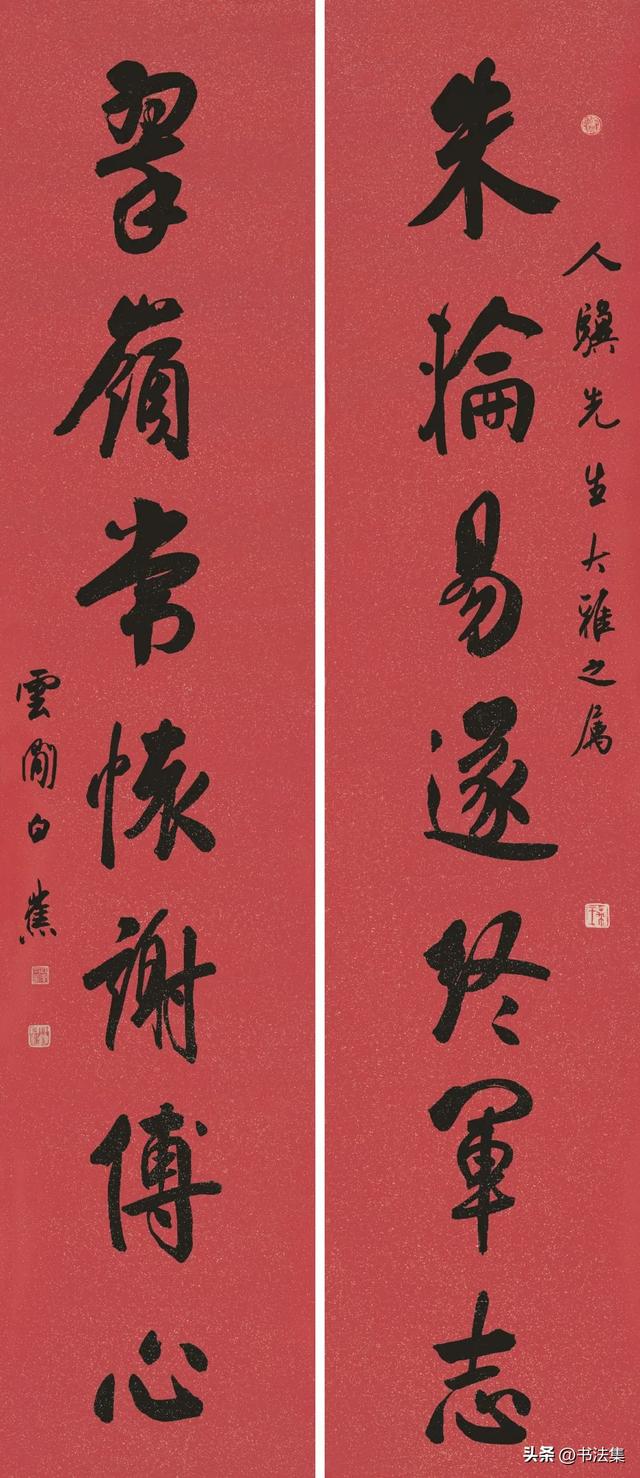 人驥先生大雅之属
朱輪易遂終軍志
翠嶺常懷謝傅心
雲間白蕉
头条 @书法集